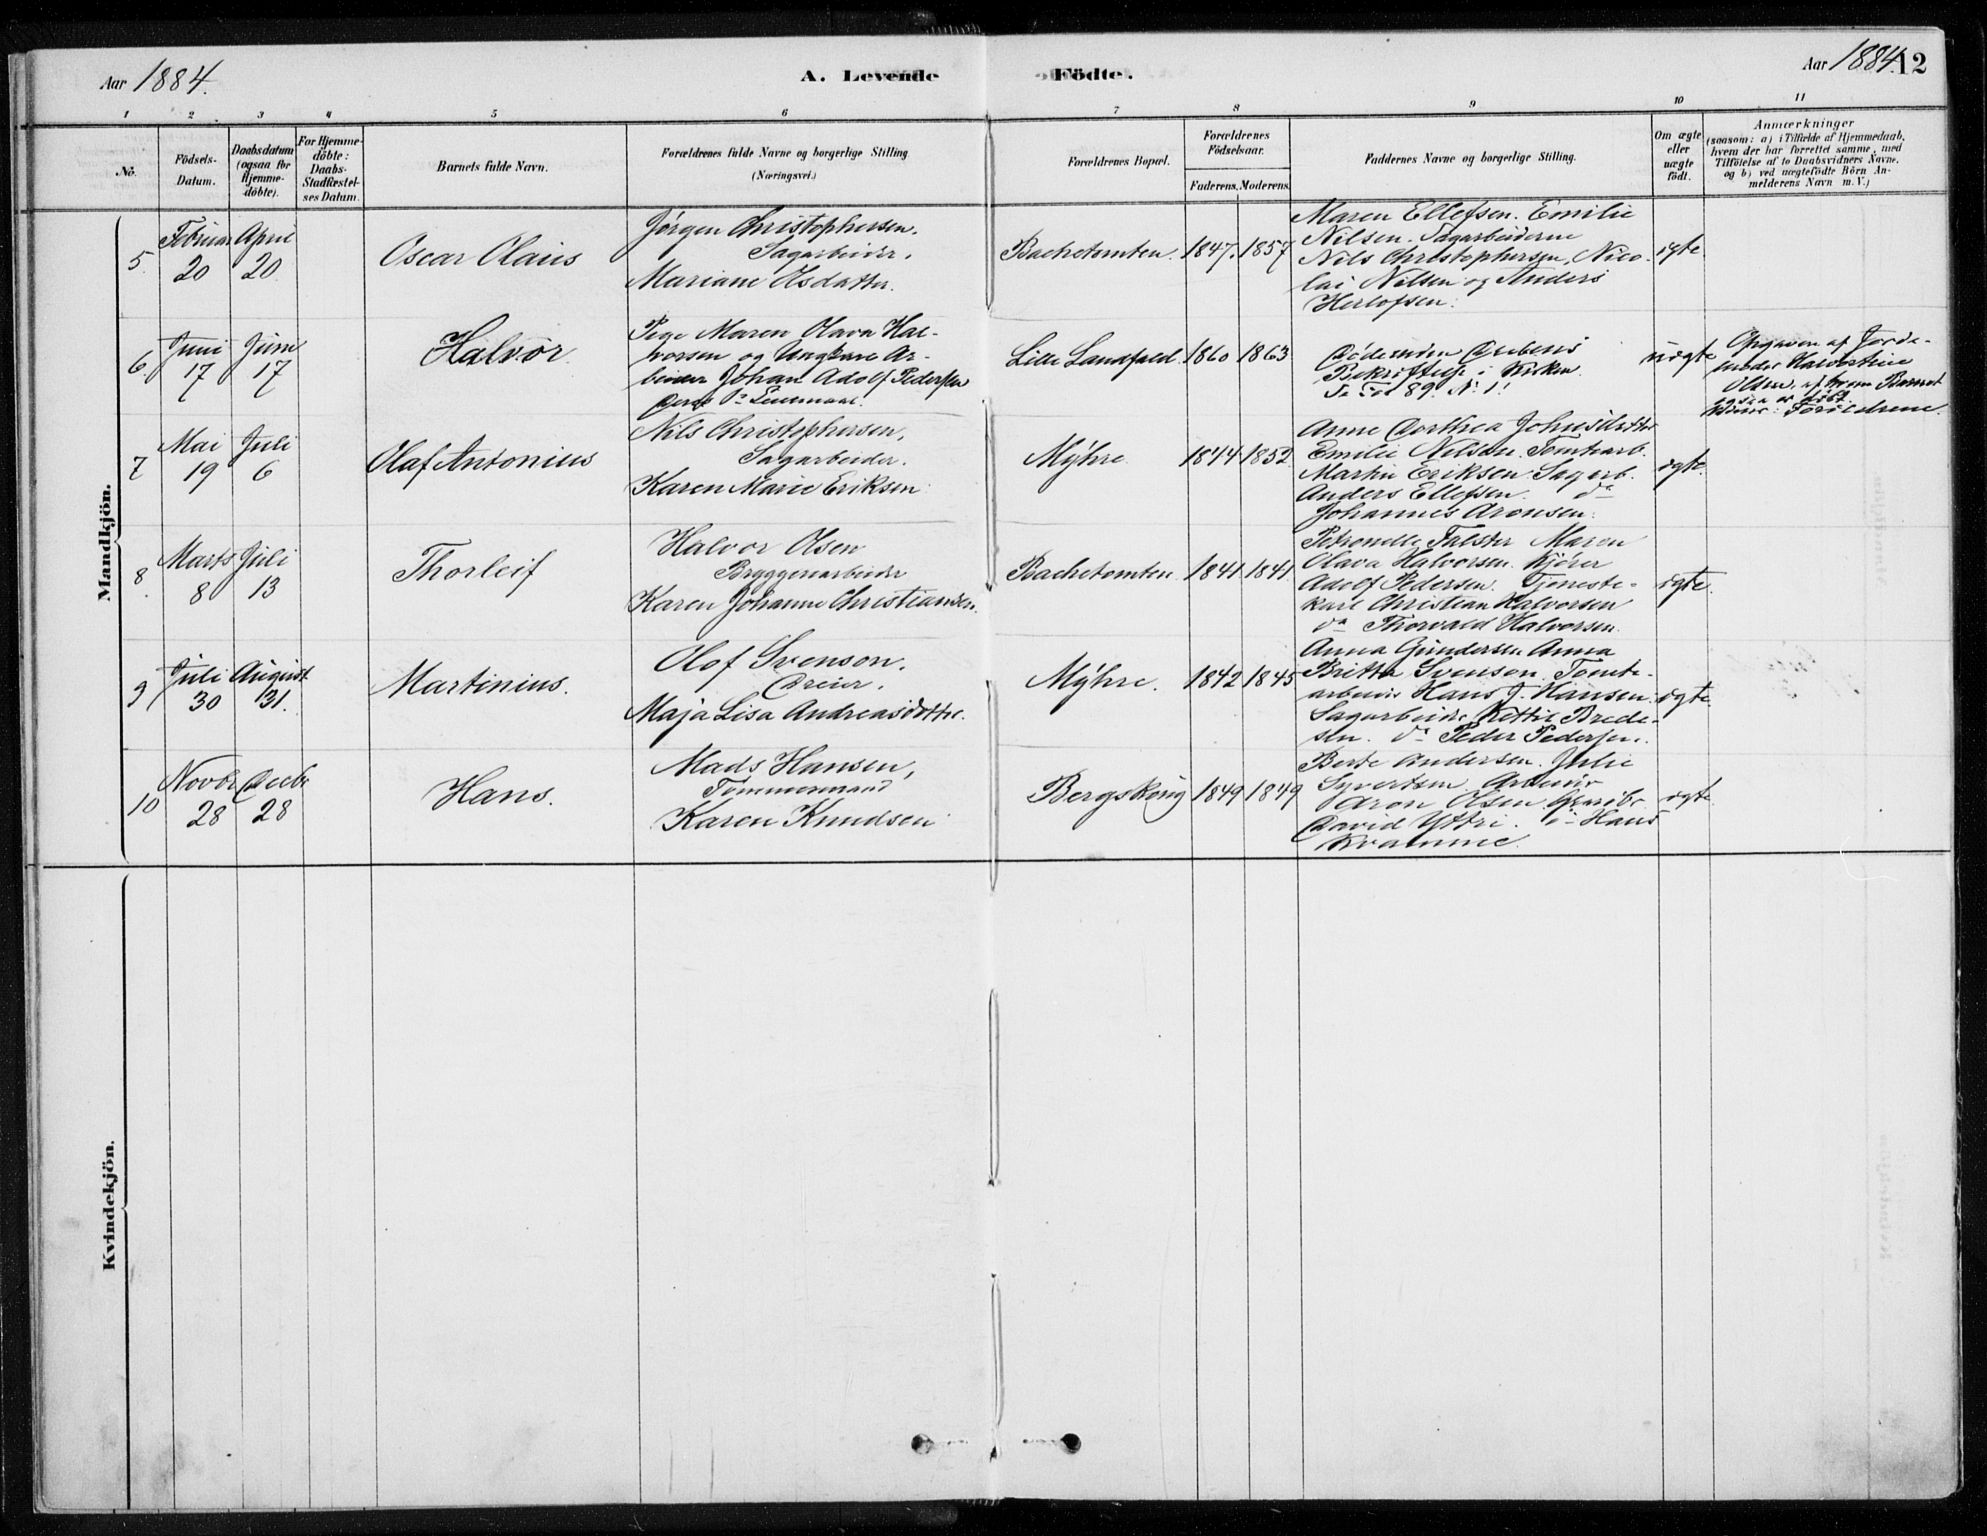 Aar 1884.
A. Levende Födte.
Aar 1884.
12
1 2 3 4 5 6 7 8 9 10 11
No.
Födsels-
Datum.
Daabsdatum
(ogsaa for
Hjemme-
döbte).
For Hjemme-
döbte:
Daabs-
Stadfæstel-
ses Datum.
Barnets fulde Navn.
Forældrenes fulde Navne og borgerlige Stilling
(Næringsvei.)
Forældrenes Bopæl.
Forældrenes
Födselsaar.
Faderens. Moderens.
Faddernes Navne og borgerlige Stilling.
Om ægte
eller
uægte
födt.
Anmærkninger
(saasom: a) i Tilfælde af Hjemmedaab,
hvem der har forrettet samme, med
Tilföielse af to Daabsvidners Navne.
og b) ved uægtefödte Börn An-
melderens Navn m. V.)
Mandkjön.
5.
Februar
20
April
20
Oscar Olaus
Jörgen Christophersen.
Sagarbeider.
Mariane Olsdatter.
Bachetomten.
1847. 1857
Maren Ellefsen. Emilie
Nilsen. Sagarbeiderne
Nils Christophersen, Nico-
lai Nilsen og Anders
Herlofsen.
ægte
6.
Juni
17
Juni
17
Halvor
Pige Maren Olava Hal-
vorsen og Ungkarl Ar-
beider Johan Adolf Pedersen
Lille Landfald.
1860 1863
Bekræftelse i Kirken
Se Fol 89. N. 1.
uægte
Opgaven af Jorde-
moder Halvorine
Olsen, af hvem Barnet
ogsaa er döbt.
Forældrene.
7
Mai
19
Juli
6
Olaf Antonius
Nils Christophersen,
Sagarbeider.
Karen Marie Eriksen
Myhre
1844 1852
Anne Dorthea Johnsdatter
Emilie Nilsen. Tomtearb.
Martin Eriksen Sagarb.
Anders Ellefsen. do
Johannes Aronsen.
ægte.
8.
Marts
8
Juli
13
Thorleif
Halvor Olsen
Bryggeriarbeider
Karen Johanne Christiansen.
Bachetomten.
1841 1841
Petronelle Falster Maren
Olava Halvorsen. Kjörer
Adolf Pedersen. Tjeneste-
karl Christian Halvorsen
do Thorvald Halvorsen.
ægte.
9
Juli
30
August
31.
Martinius.
Olof Svenson.
Dreier.
Maja Lisa Andreasdotter.
Myhre.
1842 1845
Anna Gundersen Anna
Britta Svenson. Tomte-
arbeider Hans J. Hansen.
Sagarbeider Kettil Brede-
sen. do Peder Pedersen.
ægte
10
Novbr
28
Decbr
28
Hans.
Mads Hansen,
Tømmermand
Karen Knudsen
Bergskönig
1849 1849
Berte Andersen. Julie
Syvertsen. Arbeider
Aron Olsen.
David Yttri. Hans
Kvamme.
ægte
Kvindekjön.